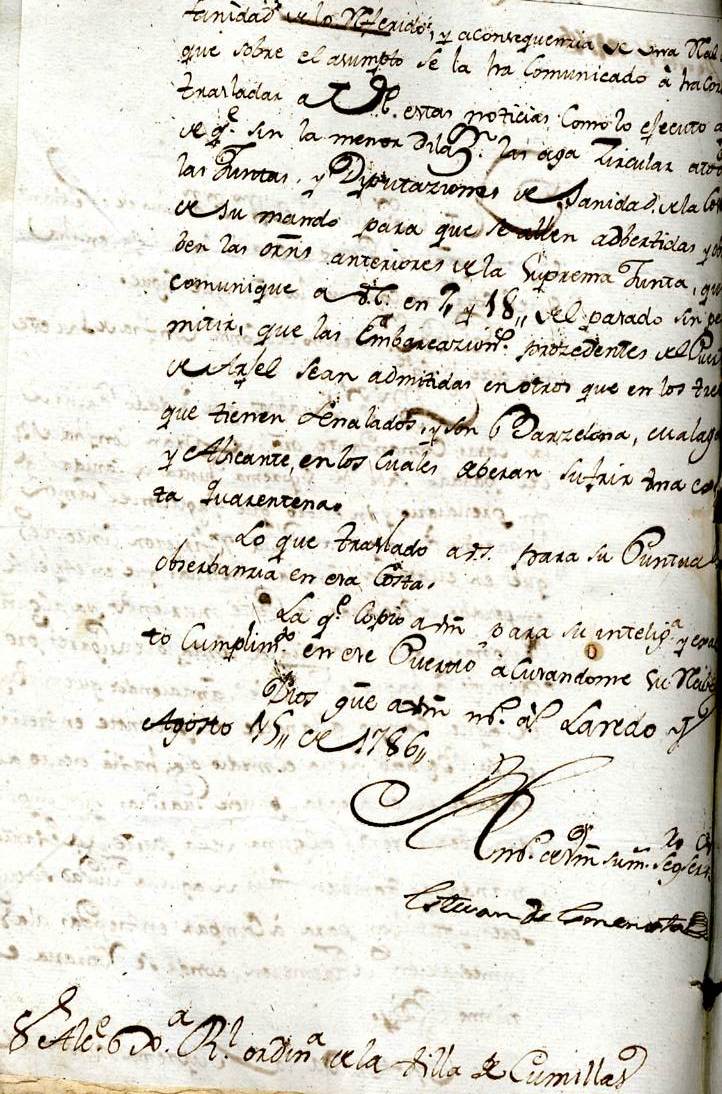 tanidad de lo Referido, y a consequenzia de una Real
que sobre el asumpto se la ha Comunicado à ha Cor
trasladar a V.S. estas noticias Como lo efecuto a
de q.e sin la menor Dilaz.n las aga Zircular a tod
las Juntas, y Diputaziones de Sanidad de la Co
de su mando para que se allen adbertidas y ob
ben las orns anteriores de la Suprema Junta, que
comunique a V.S. en 7, y 18,, del pasado sin pe
mitir, que las Embarcazion.s prozedentes del Puer
de Arjel sean admitidas en otros que en los tres
que tienen señalados, y son Barzelona, Malaga
y Alicante, en los Cuales deberan sufrir una co
ta quarentena.
Lo que traslado a V.S. para su Puntual
obserbanzia en esa Costa.
La q.e Copio a Vm para su inteligª y exac
to Cumplim.to en ese Puerto àcusandome su Recibo
Dios gue a Vm m.s a.s Laredo y
Agosto 15,, de 1786,,
B
l m.o de Vm su m. seg ser.
Estevan de
S.r Alc.e Rl ordinª de la Villa de Cumillas